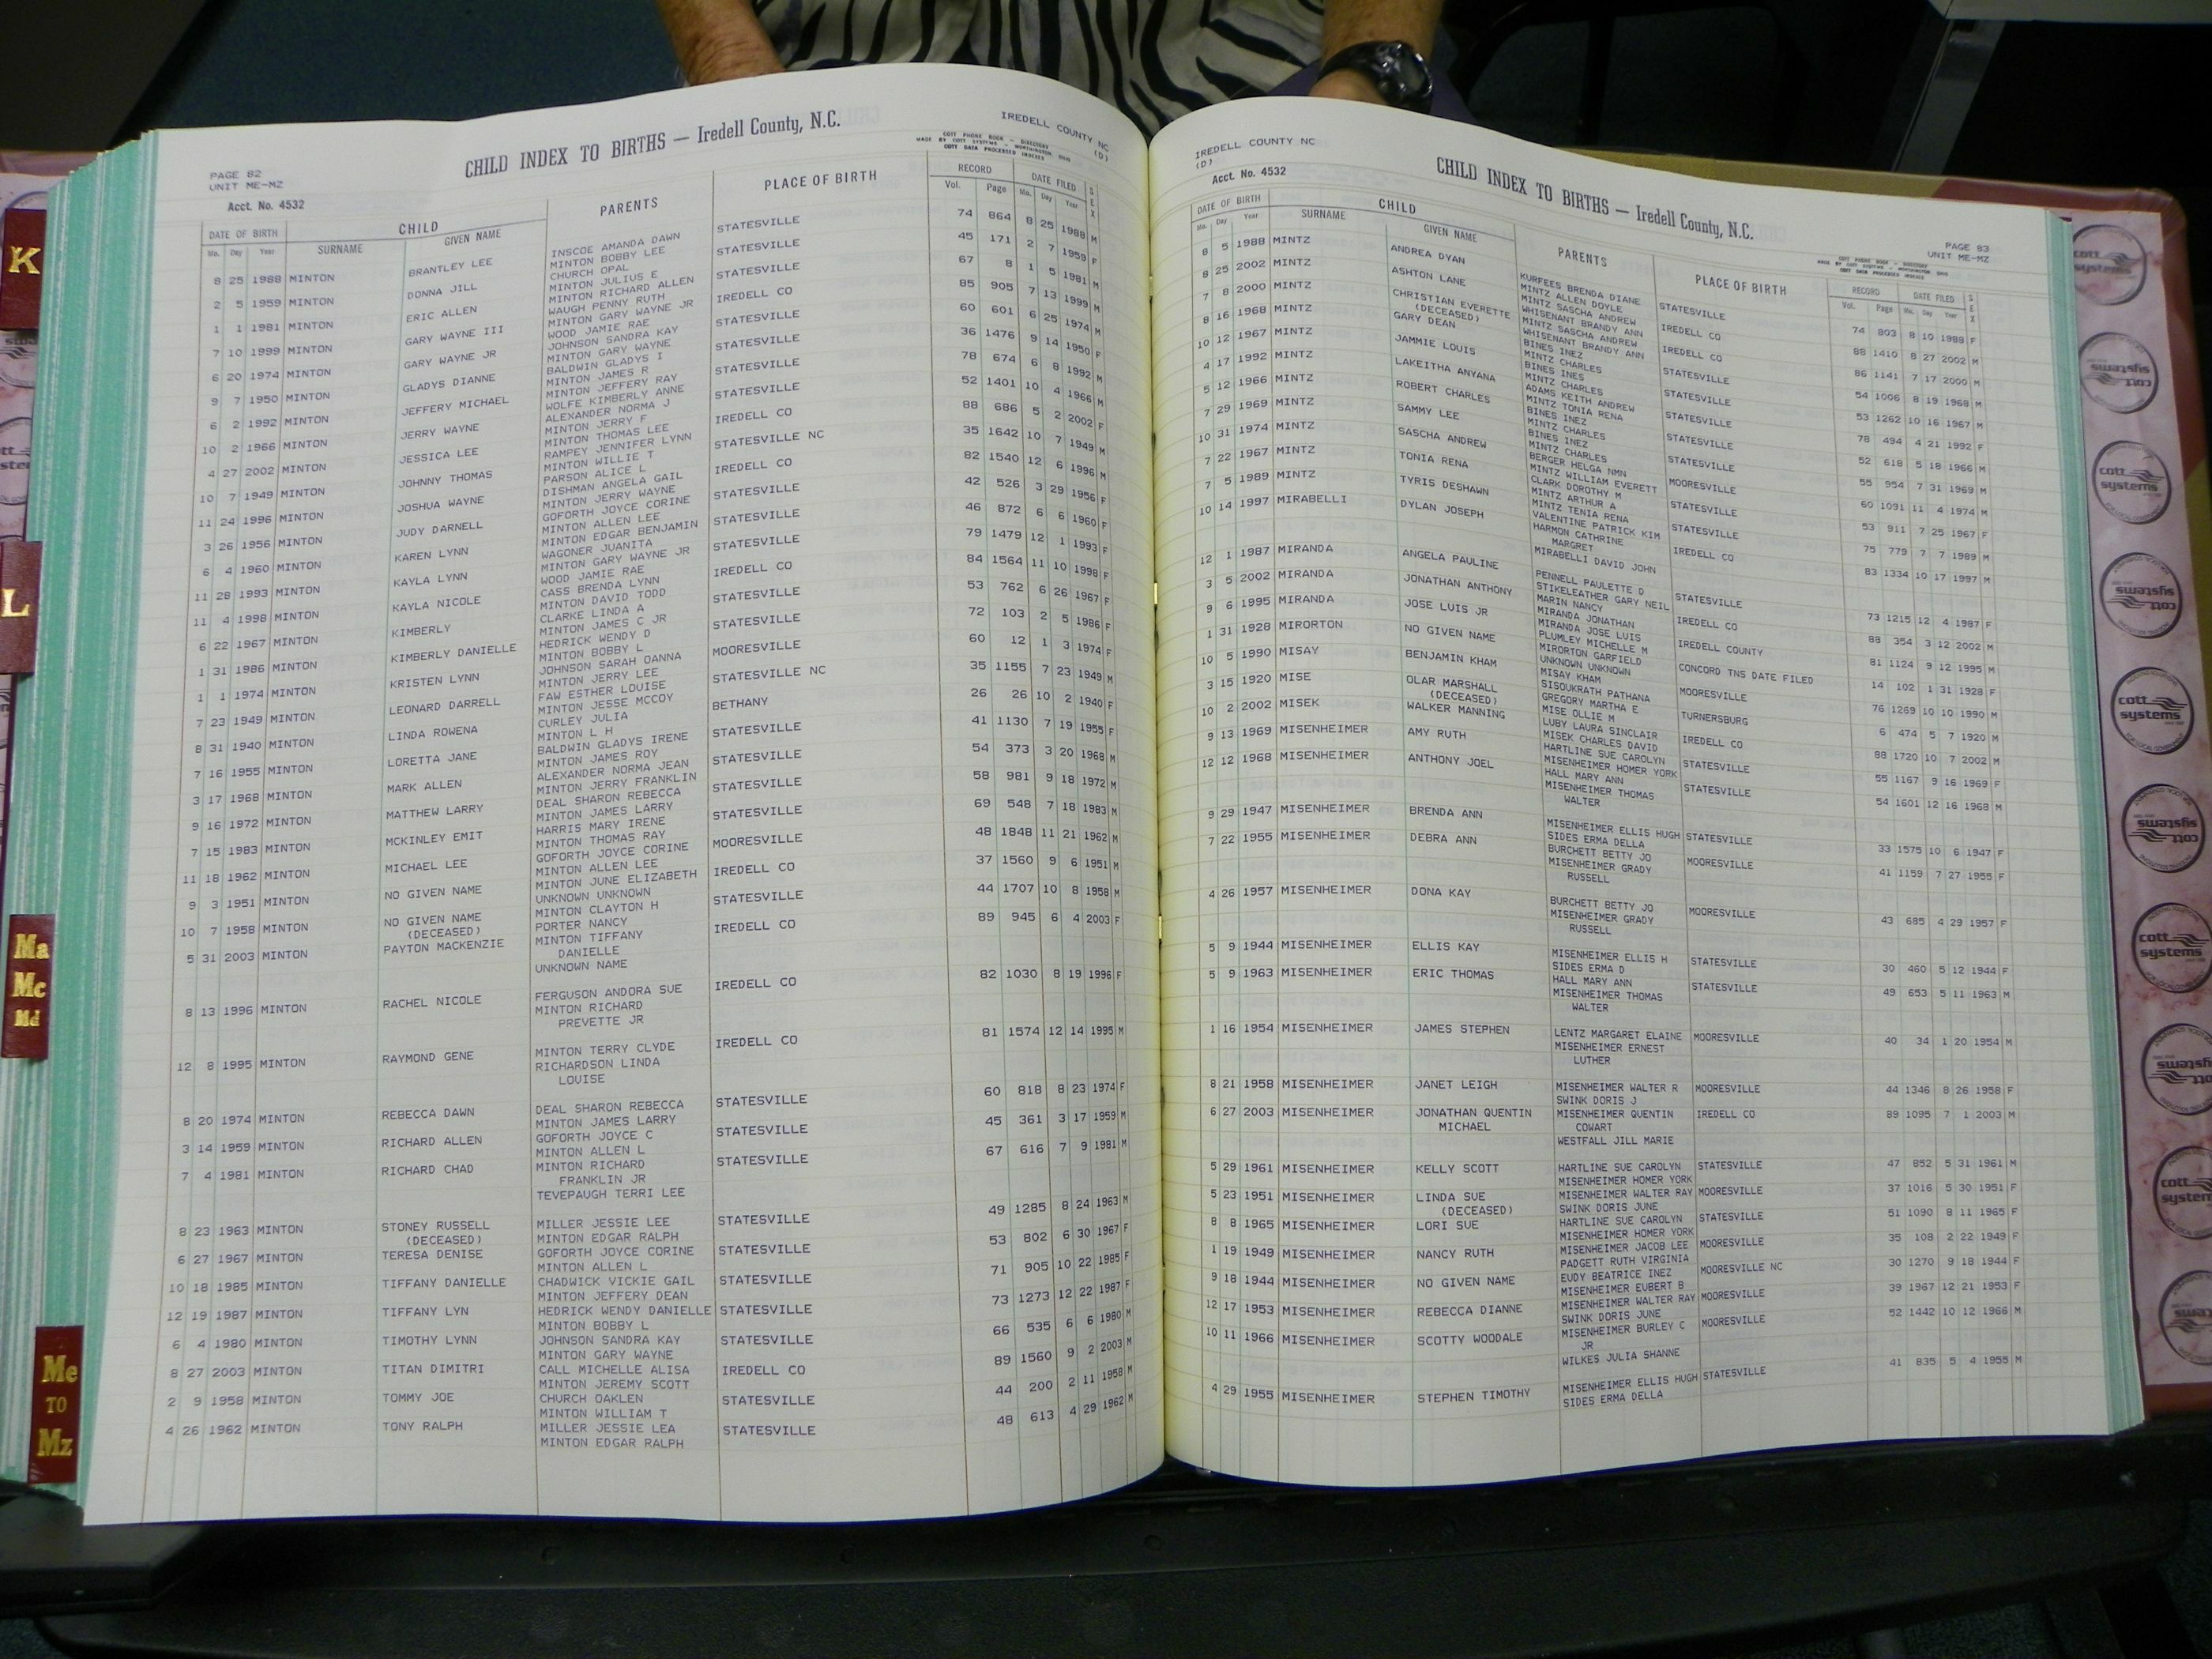 K
L
Ma
Mc
Md
Me
TO
Mz
PAGE 82
UNIT ME-MZ
Acct. No. 4532
CHILD INDEX TO BIRTHS — Iredell County, N.C.
IREDELL COUNTY NC
(D)
DATE OF BIRTH CHILD PARENTS PLACE OF BIRTH RECORD DATE FILED SEX
Mo. Day Year SURNAME GIVEN NAME Vol. Page Mo. Day Year
8 25 1988 MINTON BRANTLEY LEE INSCOE AMANDA DAWN STATESVILLE 74 864 8 25 1988 M
MINTON BOBBY LEE
2 5 1959 MINTON DONNA JILL CHURCH OPAL STATESVILLE 45 171 2 7 1959 F
MINTON JULIUS E
1 1 1981 MINTON ERIC ALLEN MINTON RICHARD ALLEN STATESVILLE 67 8 1 5 1981 M
WAUGH PENNY RUTH
7 10 1999 MINTON GARY WAYNE III MINTON GARY WAYNE JR IREDELL CO 85 905 7 13 1999 M
WOOD JAMIE RAE
6 20 1974 MINTON GARY WAYNE JR JOHNSON SANDRA KAY STATESVILLE 60 601 6 25 1974 M
MINTON GARY WAYNE
9 7 1950 MINTON GLADYS DIANNE BALDWIN GLADYS I STATESVILLE 36 1476 9 14 1950 F
MINTON JAMES R
6 2 1992 MINTON JEFFERY MICHAEL MINTON JEFFERY RAY STATESVILLE 78 674 6 8 1992 M
WOLFE KIMBERLY ANNE
10 2 1966 MINTON JERRY WAYNE ALEXANDER NORMA J STATESVILLE 52 1401 10 4 1966 M
MINTON JERRY F
4 27 2002 MINTON JESSICA LEE MINTON THOMAS LEE IREDELL CO 88 686 5 2 2002 F
RAMPEY JENNIFER LYNN
10 7 1949 MINTON JOHNNY THOMAS MINTON WILLIE T STATESVILLE NC 35 1642 10 7 1949 M
PARSON ALICE L
11 24 1996 MINTON JOSHUA WAYNE DISHMAN ANGELA GAIL IREDELL CO 82 1540 12 6 1996 M
MINTON JERRY WAYNE
3 26 1956 MINTON JUDY DARNELL GOFORTH JOYCE CORINE STATESVILLE 42 526 3 29 1956 F
MINTON ALLEN LEE
6 4 1960 MINTON KAREN LYNN MINTON EDGAR BENJAMIN STATESVILLE 46 872 6 6 1960 F
WAGONER JUANITA
11 28 1993 MINTON KAYLA LYNN MINTON GARY WAYNE JR STATESVILLE 79 1479 12 1 1993 F
WOOD JAMIE RAE
11 4 1998 MINTON KAYLA NICOLE CASS BRENDA LYNN IREDELL CO 84 1564 11 10 1998 F
MINTON DAVID TODD
6 22 1967 MINTON KIMBERLY CLARKE LINDA A STATESVILLE 53 762 6 26 1967 F
MINTON JAMES C JR
1 31 1986 MINTON KIMBERLY DANIELLE HEDRICK WENDY D STATESVILLE 72 103 2 5 1986 F
MINTON BOBBY L
1 1 1974 MINTON KRISTEN LYNN JOHNSON SARAH OANNA MOORESVILLE 60 12 1 3 1974 F
MINTON JERRY LEE
7 23 1949 MINTON LEONARD DARRELL FAW ESTHER LOUISE STATESVILLE NC 35 1155 7 23 1949 M
MINTON JESSE MCCOY
8 31 1940 MINTON LINDA ROWENA CURLEY JULIA BETHANY 26 26 10 2 1940 F
MINTON L H
7 16 1955 MINTON LORETTA JANE BALDWIN GLADYS IRENE STATESVILLE 41 1130 7 19 1955 F
MINTON JAMES ROY
3 17 1968 MINTON MARK ALLEN ALEXANDER NORMA JEAN STATESVILLE 54 373 3 20 1968 M
MINTON JERRY FRANKLIN
9 16 1972 MINTON MATTHEW LARRY DEAL SHARON REBECCA STATESVILLE 58 981 9 18 1972 M
MINTON JAMES LARRY
7 15 1983 MINTON MCKINLEY EMIT HARRIS MARY IRENE STATESVILLE 69 548 7 18 1983 M
MINTON THOMAS RAY
11 18 1962 MINTON MICHAEL LEE GOFORTH JOYCE CORINE MOORESVILLE 48 1848 11 21 1962 M
MINTON ALLEN LEE
9 3 1951 MINTON NO GIVEN NAME MINTON JUNE ELIZABETH IREDELL CO 37 1560 9 6 1951 M
UNKNOWN UNKNOWN
10 7 1958 MINTON NO GIVEN NAME MINTON CLAYTON H STATESVILLE 44 1707 10 8 1958 M
(DECEASED) PORTER NANCY
5 31 2003 MINTON PAYTON MACKENZIE MINTON TIFFANY IREDELL CO 89 945 6 4 2003 F
DANIELLE
UNKNOWN NAME
8 13 1996 MINTON RACHEL NICOLE FERGUSON ANDORA SUE IREDELL CO 82 1030 8 19 1996 F
MINTON RICHARD
PREVETTE JR
12 8 1995 MINTON RAYMOND GENE MINTON TERRY CLYDE IREDELL CO 81 1574 12 14 1995 M
RICHARDSON LINDA
LOUISE
8 20 1974 MINTON REBECCA DAWN DEAL SHARON REBECCA STATESVILLE 60 818 8 23 1974 F
MINTON JAMES LARRY
3 14 1959 MINTON RICHARD ALLEN GOFORTH JOYCE C STATESVILLE 45 361 3 17 1959 M
MINTON ALLEN L
7 4 1981 MINTON RICHARD CHAD MINTON RICHARD STATESVILLE 67 616 7 9 1981 M
FRANKLIN JR
TEVEPAUGH TERRI LEE
8 23 1963 MINTON STONEY RUSSELL MILLER JESSIE LEE STATESVILLE 49 1285 8 24 1963 M
(DECEASED) MINTON EDGAR RALPH
6 27 1967 MINTON TERESA DENISE GOFORTH JOYCE CORINE STATESVILLE 53 802 6 30 1967 F
MINTON ALLEN L
10 18 1985 MINTON TIFFANY DANIELLE CHADWICK VICKIE GAIL STATESVILLE 71 905 10 22 1985 F
MINTON JEFFERY DEAN
12 19 1987 MINTON TIFFANY LYN HEDRICK WENDY DANIELLE STATESVILLE 73 1273 12 22 1987 F
MINTON BOBBY L
6 4 1980 MINTON TIMOTHY LYNN JOHNSON SANDRA KAY STATESVILLE 66 535 6 6 1980 M
MINTON GARY WAYNE
8 27 2003 MINTON TITAN DIMITRI CALL MICHELLE ALISA IREDELL CO 89 1560 9 2 2003 M
MINTON JEREMY SCOTT
2 9 1958 MINTON TOMMY JOE CHURCH OAKLEN STATESVILLE 44 200 2 11 1958 M
MINTON WILLIAM T
4 26 1962 MINTON TONY RALPH MILLER JESSIE LEA STATESVILLE 48 613 4 29 1962 M
MINTON EDGAR RALPH
IREDELL COUNTY NC
(D)
Acct. No. 4532
CHILD INDEX TO BIRTHS — Iredell County, N.C.
PAGE 83
UNIT ME-MZ
DATE OF BIRTH CHILD PARENTS PLACE OF BIRTH RECORD DATE FILED SEX
Mo. Day Year SURNAME GIVEN NAME Vol. Page Mo. Day Year
8 5 1988 MINTZ ANDREA DYAN KURFEES BRENDA DIANE STATESVILLE 74 803 8 10 1988 F
MINTZ ALLEN DOYLE
8 25 2002 MINTZ ASHTON LANE MINTZ SASCHA ANDREW IREDELL CO 88 1410 8 27 2002 M
WHISENANT BRANDY ANN
7 8 2000 MINTZ CHRISTIAN EVERETTE MINTZ SASCHA ANDREW IREDELL CO 86 1141 7 17 2000 M
(DECEASED) WHISENANT BRANDY ANN
8 16 1968 MINTZ GARY DEAN BINES INEZ STATESVILLE 54 1006 8 19 1968 M
MINTZ CHARLES
10 12 1967 MINTZ JAMMIE LOUIS BINES INES STATESVILLE 53 1262 10 16 1967 M
MINTZ CHARLES
4 17 1992 MINTZ LAKEITHA ANYANA ADAMS KEITH ANDREW STATESVILLE 78 494 4 21 1992 F
MINTZ TONIA RENA
5 12 1966 MINTZ ROBERT CHARLES BINES INEZ STATESVILLE 52 618 5 18 1966 M
MINTZ CHARLES
7 29 1969 MINTZ SAMMY LEE BINES INEZ MOORESVILLE 55 954 7 31 1969 M
MINTZ CHARLES
10 31 1974 MINTZ SASCHA ANDREW BERGER HELGA NMN STATESVILLE 60 1091 11 4 1974 M
MINTZ WILLIAM EVERETT
7 22 1967 MINTZ TONIA RENA CLARK DOROTHY M STATESVILLE 53 911 7 25 1967 F
MINTZ ARTHUR A
7 5 1989 MINTZ TYRIS DESHAWN MINTZ TENIA RENA IREDELL CO 75 779 7 7 1989 M
VALENTINE PATRICK KIM
10 14 1997 MIRABELLI DYLAN JOSEPH HARMON CATHRINE 83 1334 10 17 1997 M
MARGRET
MIRABELLI DAVID JOHN
12 1 1987 MIRANDA ANGELA PAULINE PENNELL PAULETTE D STATESVILLE 73 1215 12 4 1987 F
STIKELEATHER GARY NEIL
3 5 2002 MIRANDA JONATHAN ANTHONY MARIN NANCY IREDELL CO 88 354 3 12 2002 M
MIRANDA JONATHAN
9 6 1995 MIRANDA JOSE LUIS JR MIRANDA JOSE LUIS IREDELL COUNTY 81 1124 9 12 1995 M
PLUMLEY MICHELLE M
1 31 1928 MIRORTON NO GIVEN NAME MIRORTON GARFIELD CONCORD TNS DATE FILED 14 102 1 31 1928 F
UNKNOWN UNKNOWN
10 5 1990 MISAY BENJAMIN KHAM MISAY KHAM MOORESVILLE 76 1269 10 10 1990 M
SISOUKRATH PATHANA
3 15 1920 MISE OLAR MARSHALL GREGORY MARTHA E TURNERSBURG 6 474 5 7 1920 M
(DECEASED) MISE OLLIE M
10 2 2002 MISEK WALKER MANNING LUBY LAURA SINCLAIR IREDELL CO 88 1720 10 7 2002 M
MISEK CHARLES DAVID
9 13 1969 MISENHEIMER AMY RUTH HARTLINE SUE CAROLYN STATESVILLE 55 1167 9 16 1969 F
MISENHEIMER HOMER YORK
12 12 1968 MISENHEIMER ANTHONY JOEL HALL MARY ANN STATESVILLE 54 1601 12 16 1968 M
MISENHEIMER THOMAS
WALTER
9 29 1947 MISENHEIMER BRENDA ANN MISENHEIMER ELLIS HUGH STATESVILLE 33 1575 10 6 1947 F
SIDES ERMA DELLA
7 22 1955 MISENHEIMER DEBRA ANN BURCHETT BETTY JO MOORESVILLE 41 1159 7 27 1955 F
MISENHEIMER GRADY
RUSSELL
4 26 1957 MISENHEIMER DONA KAY BURCHETT BETTY JO MOORESVILLE 43 685 4 29 1957 F
MISENHEIMER GRADY
RUSSELL
5 9 1944 MISENHEIMER ELLIS KAY MISENHEIMER ELLIS H STATESVILLE 30 460 5 12 1944 F
SIDES ERMA D
5 9 1963 MISENHEIMER ERIC THOMAS HALL MARY ANN STATESVILLE 49 653 5 11 1963 M
MISENHEIMER THOMAS
WALTER
1 16 1954 MISENHEIMER JAMES STEPHEN LENTZ MARGARET ELAINE MOORESVILLE 40 34 1 20 1954 M
MISENHEIMER ERNEST
LUTHER
8 21 1958 MISENHEIMER JANET LEIGH MISENHEIMER WALTER R MOORESVILLE 44 1346 8 26 1958 F
SWINK DORIS J
6 27 2003 MISENHEIMER JONATHAN QUENTIN MISENHEIMER QUENTIN IREDELL CO 89 1095 7 1 2003 M
MICHAEL COWART
WESTFALL JILL MARIE
5 29 1961 MISENHEIMER KELLY SCOTT HARTLINE SUE CAROLYN STATESVILLE 47 852 5 31 1961 M
MISENHEIMER HOMER YORK
5 23 1951 MISENHEIMER LINDA SUE MISENHEIMER WALTER RAY MOORESVILLE 37 1016 5 30 1951 F
(DECEASED) SWINK DORIS JUNE
8 8 1965 MISENHEIMER LORI SUE HARTLINE SUE CAROLYN STATESVILLE 51 1090 8 11 1965 F
MISENHEIMER HOMER YORK
1 19 1949 MISENHEIMER NANCY RUTH MISENHEIMER JACOB LEE MOORESVILLE 35 108 2 22 1949 F
PADGETT RUTH VIRGINIA
9 18 1944 MISENHEIMER NO GIVEN NAME EUDY BEATRICE INEZ MOORESVILLE NC 30 1270 9 18 1944 F
MISENHEIMER EUBERT B
12 17 1953 MISENHEIMER REBECCA DIANNE MISENHEIMER WALTER RAY MOORESVILLE 39 1967 12 21 1953 F
SWINK DORIS JUNE
10 11 1966 MISENHEIMER SCOTTY WOODALE MISENHEIMER BURLEY C MOORESVILLE 52 1442 10 12 1966 M
JR
WILKES JULIA SHANNE
4 29 1955 MISENHEIMER STEPHEN TIMOTHY MISENHEIMER ELLIS HUGH STATESVILLE 41 835 5 4 1955 M
SIDES ERMA DELLA
cott
systems